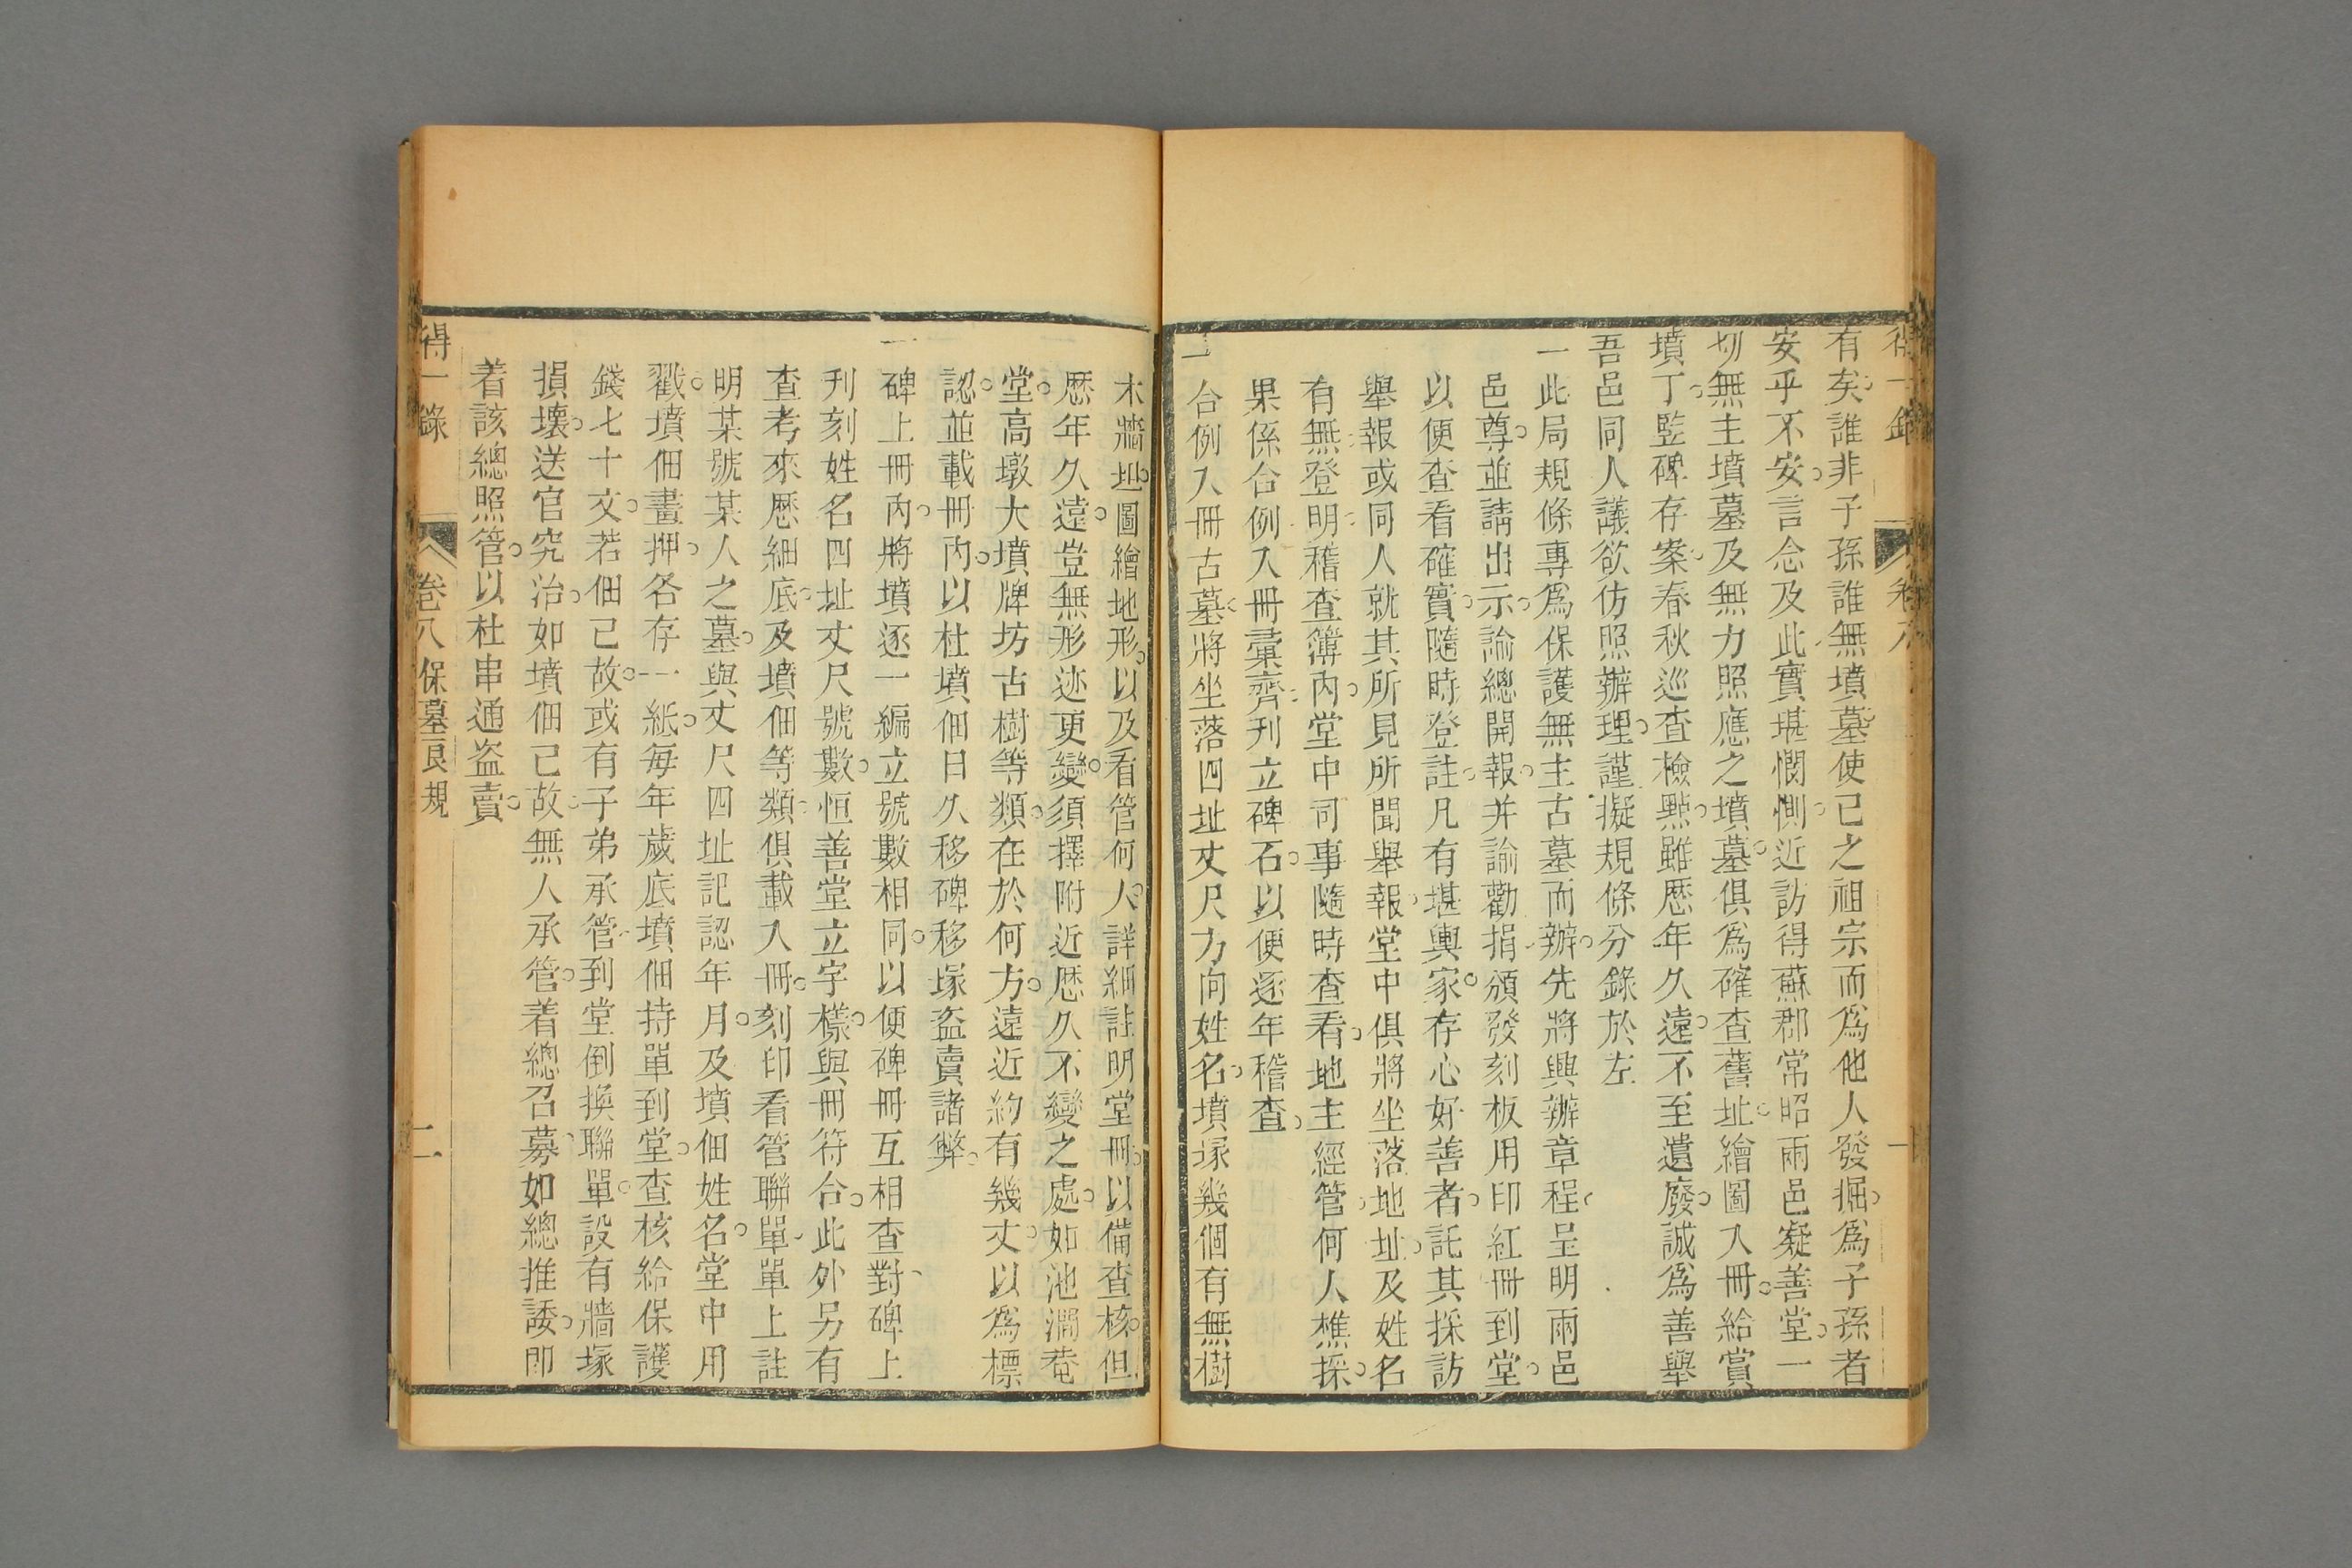 得一錄
卷八
一
有矣誰非子孫誰無墳墓使已之祖宗而爲他人發掘爲子孫者
安乎不安言念及此實堪憫惻近訪得蘇郡常昭兩邑凝善堂一
切無主墳墓及無力照應之墳墓俱爲確查舊址繪圖入冊給賞
墳丁監碑存案春秋巡查檢㸃雖歷年久遠不至遺廢誠爲善舉
吾邑同人議欲仿照辦理謹擬規條分錄於左
一此局規條專爲保護無主古墓而辦先將興辦章程呈明兩邑
邑尊並請出示諭總開報并諭勸捐頒發刻板用印紅冊到堂
以便查看確實隨時登註凡有堪輿家存心好善者託其採訪
舉報或同人就其所見所聞舉報堂中俱將坐落地址及姓名
有無登明稽查簿內堂中司事隨時查看地主經管何人樵採
果係合例入冊彙齊刋立碑石以便逐年稽査
一合例入冊古墓將坐落四址丈尺方向姓名墳塚幾個有無樹
木牆圵圖繪地形以及看管何人詳細註明堂冊以備查核但
歷年久遠豈無形迹更變須擇附近歷久不變之處如池澗菴
堂高墩大墳牌坊古樹等類在於何方遠近約有幾丈以爲標
認並載冊內以杜墳佃日久移碑移塚盜賣諸弊
一碑上冊內將墳逐一編立號數相同以便碑冊互相查對碑上
刋刻姓名四址丈尺號數恒善堂立字樣與冊符合此外另有
查考來歷細底及墳佃等類俱載入冊刻印看管聯單單上註
明某號某人之墓與丈尺四址記認年月及墳佃姓名堂中用
戳墳佃畫押各存一紙每年歲底墳佃持單到堂查核給保護
錢七十文若佃已故或有子弟承管到堂倒換聯單設有牆塚
損壞送官究治如墳佃已故無人承管着總召募如總推諉即
着該總照管以杜串通盜賣
得一錄
卷八保墓良規
二